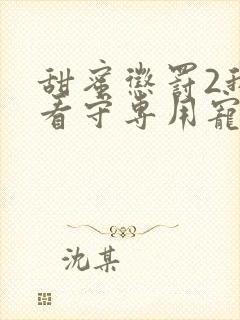 甜蜜惩罚2我
看守专用宠
沈某